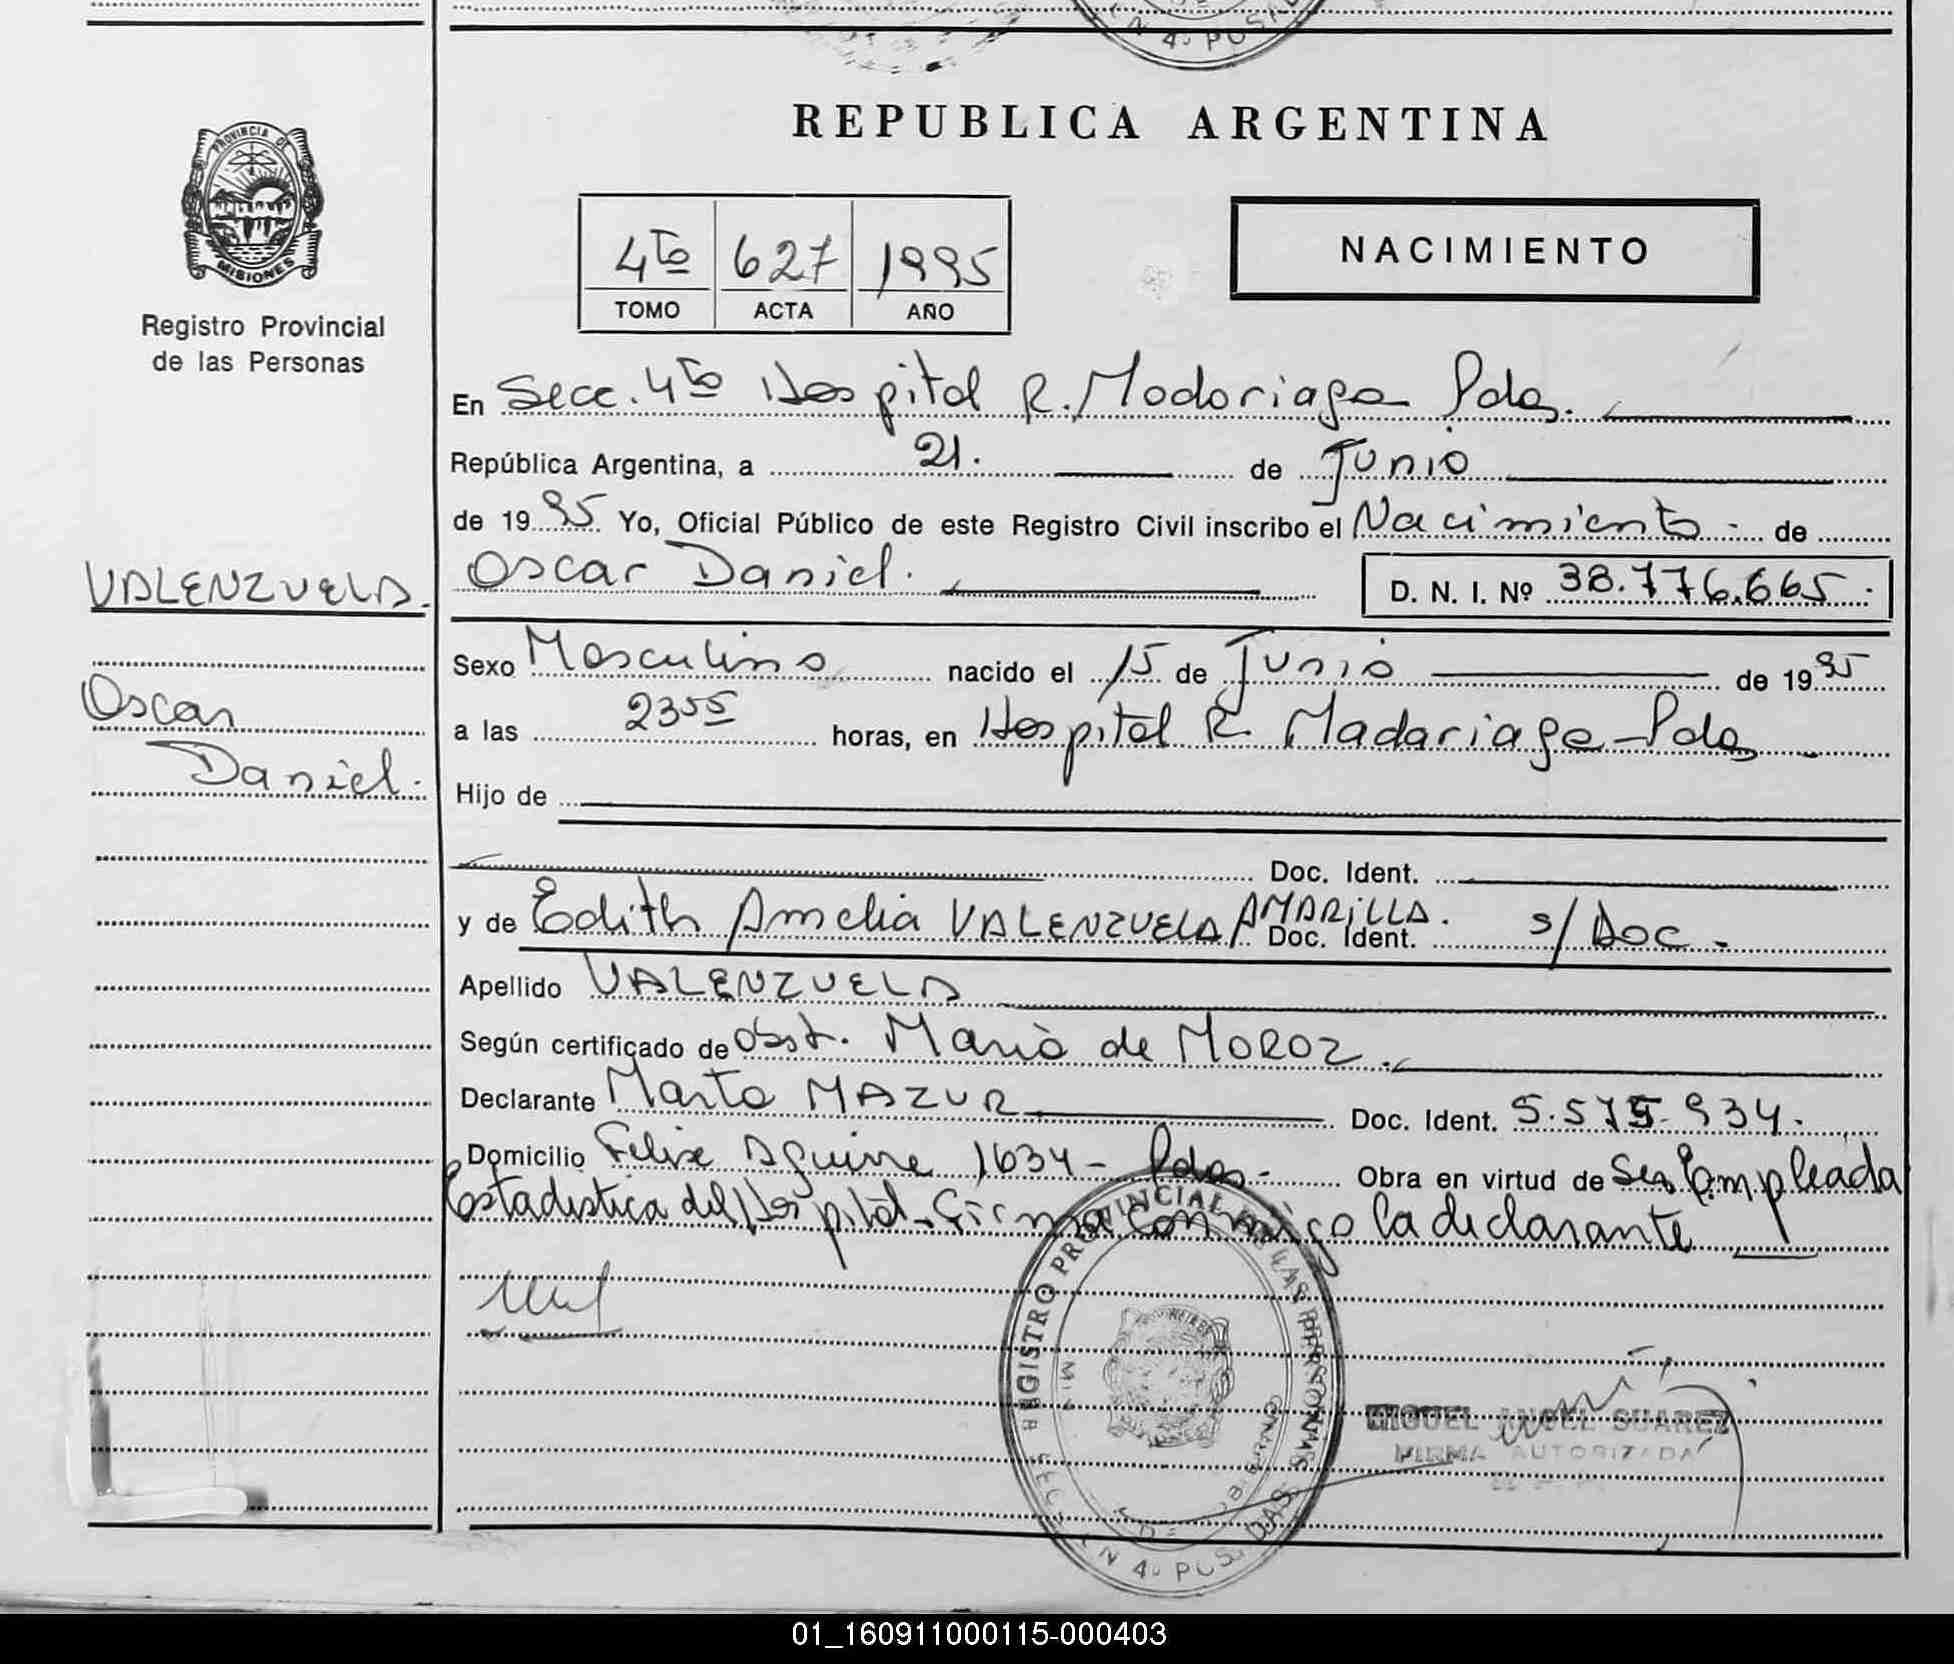 EN 4º POSAD
REPUBLICA ARGENTINA
PROVINCIA DE
MISIONES
Registro Provincial
de las Personas
4to 627 1995
TOMO ACTA AÑO
NACIMIENTO
En Secc. 4to Hospital R. Madariaga Pdas.
República Argentina, a 21. de Junio
de 1995 Yo, Oficial Público de este Registro Civil inscribo el Nacimiento de
VALENZUELA.
Oscar Daniel. D. N. I. Nº 38.776.665.
Sexo Masculino nacido el 15 de Junio de 1995
Oscar
a las 2355 horas, en Hospital R. Madariaga - Pdas
Daniel.
Hijo de
Doc. Ident.
y de Edith Amelia VALENZUELA AMARILLA. Doc. Ident. s/Doc -
Apellido VALENZUELA
Según certificado de Obst. María de MOROZ.
Declarante Marta MAZUR Doc. Ident. 5.575.934.
Domicilio Felix Aguirre 1634 - Pdas - Obra en virtud de Ser Empleada
Estadistica del Hospital - Firma conmigo la declarante
REGISTRO PROVINCIAL DE LAS PERSONAS
MIGUEL ANGEL SUAREZ
FIRMA AUTORIZADA
01_160911000115-000403